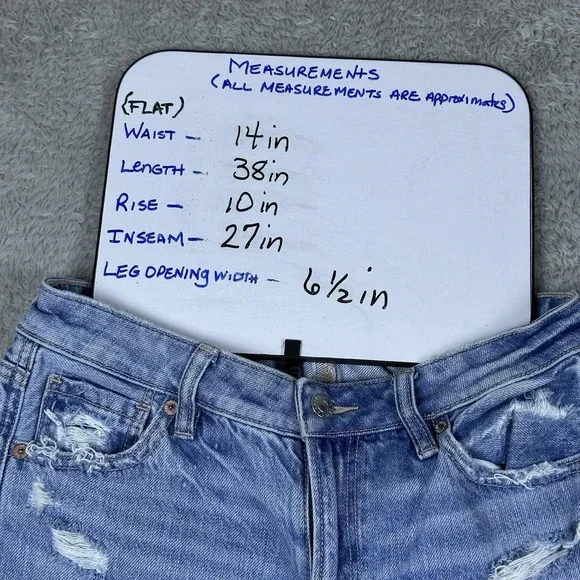 MEASUREMENTS
(ALL MEASUREMENTS ARE APPROXIMATES)
(FLAT)
WAIST - 14 in
LENGTH - 38 in
RISE - 10 in
INSEAM - 27 in
LEG OPENING WIDTH - 6 1/2 in